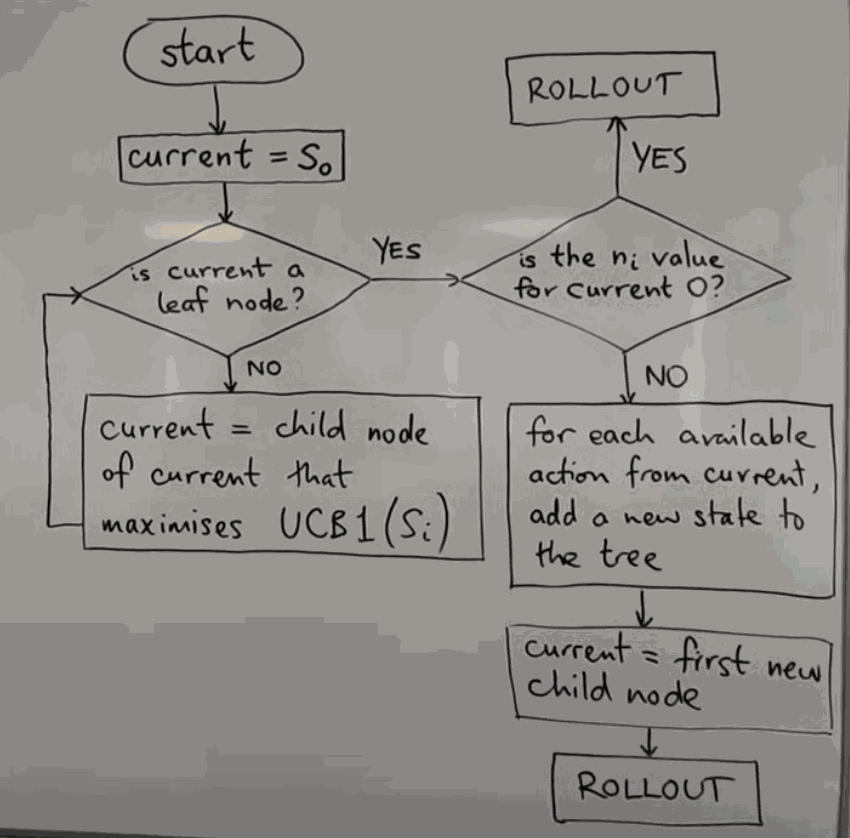 start
current = S₀
is current a
leaf node?
YES
NO
current = child node
of current that
maximises UCB1(Sᵢ)
is the nᵢ value
for current 0?
YES
ROLLOUT
NO
for each available
action from current,
add a new state to
the tree
current = first new
child node
ROLLOUT